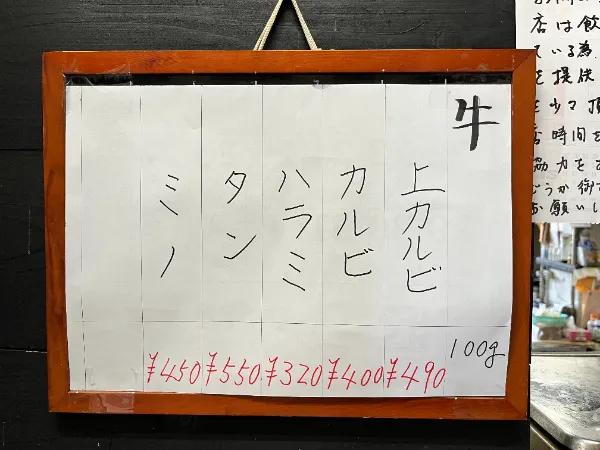 牛 100g
上カルビ ¥490
カルビ ¥400
ハラミ ¥320
タン ¥550
ミノ ¥450
店は飲
ている為、
を提供
を少々頂
店時間を
協力を
どうか御
お願いし